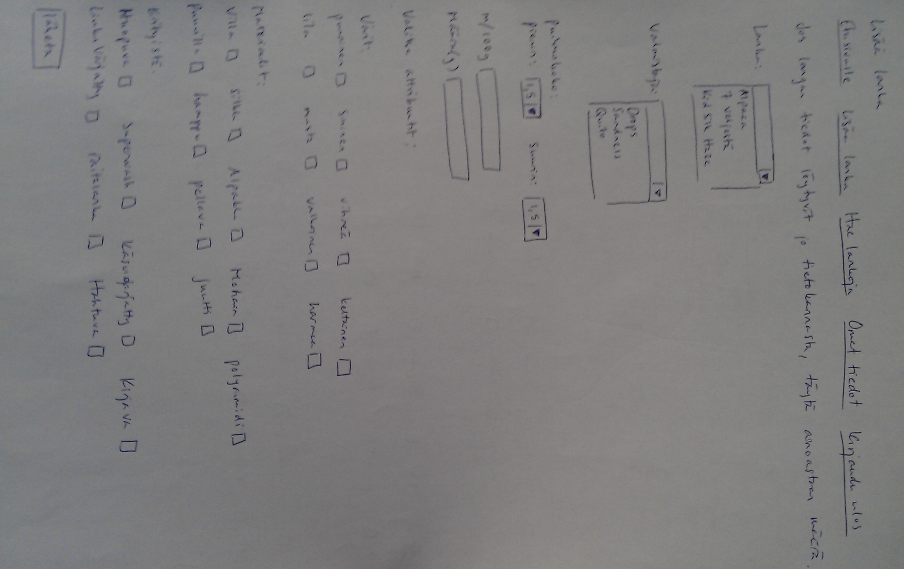 Lisää lanka
Etusivulle Lisää lanka Hae lankoja Omat tiedot Kirjaudu ulos
Jos langan tiedot löytyvät jo tietokannasta, täytä ainoastaan määrä.
Lanka:
Alpaca
7 veljestä
Kid Silk Haze
Valmistaja:
Drops
Sandnes
Quito
Puikkokoko:
pienin: 1,5 suurin: 1,5
m/100g
Määrä(g)
Valitse attribuutit:
Värit:
punainen sininen vihreä keltainen
lila musta valkoinen harmaa
Materiaalit:
Villa silkki Alpakka Mohair polyamidi
Puuvilla hamppu pellava juutti
Erityistä:
Huopuva Superwash Käsinvärjätty Kirjava
Liukuvärjätty Raitalanka Hahtuva
Lähetä